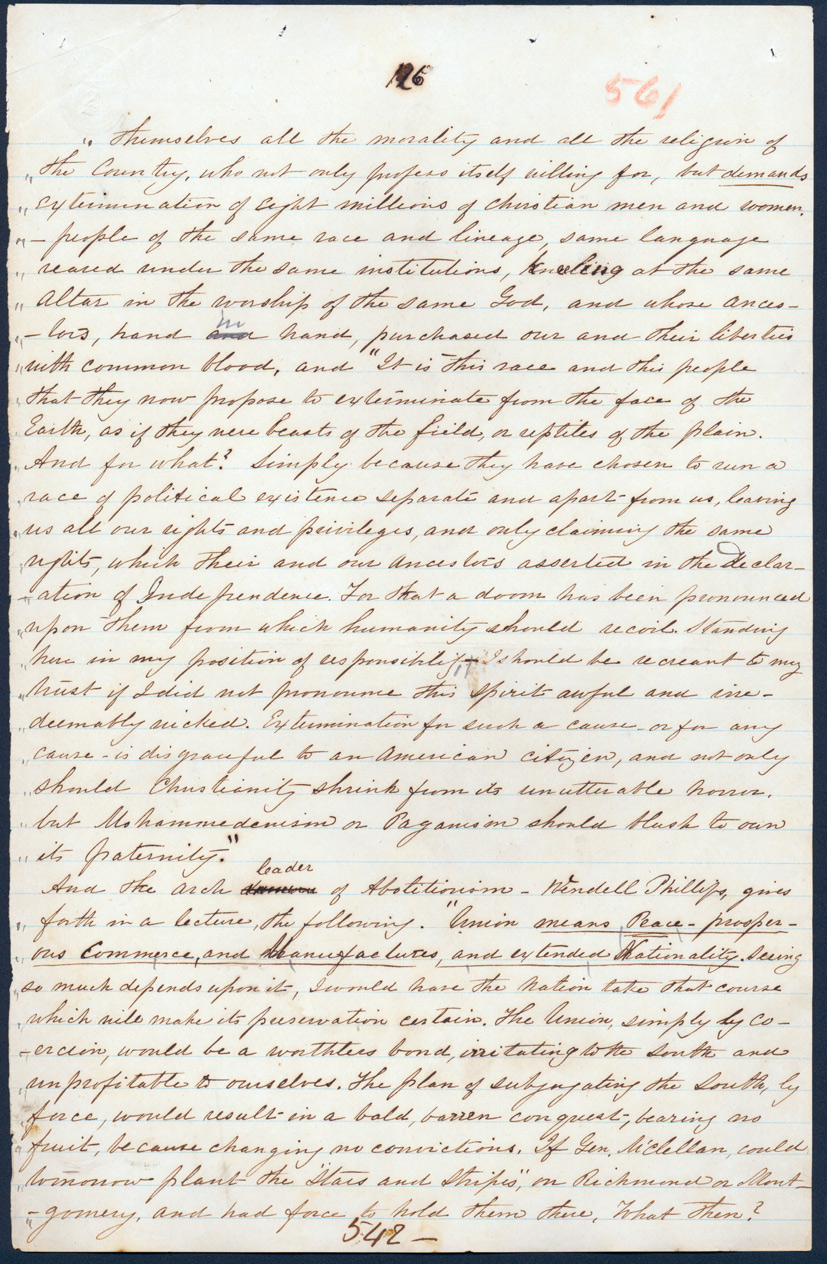 126
561
" themselves all the morality and all the religion of
" the Country, who not only profess itself willing for, but demands
" extermination of eight millions of Christian men and women,
" – people of the same race and lineage, same language
" reared under the same institutions, kneeling at the same
" altar in the worship of the same God, and whose ances-
" -tors, hand in hand, purchased our and their liberties
" with common blood, and "It is this race and this people
" that they now propose to exterminate from the face of the
" Earth, as if they were beasts of the field, or reptiles of the plain.
" And for what? Simply because they have chosen to run a
" race of political existence separate and apart from us, leaving
" us all our rights and privileges, and only claiming the same
" rights, which their and our ancestors asserted in the Declar-
" -ation of Independence. For that a doom has been pronounced
" upon them from which humanity should recoil. Standing
" here in my position of responsibility I should be recreant to my
" trust if I did not pronounce this spirit awful and irre-
" deemably wicked. Extermination for such a cause – or for any
" cause – is disgraceful to an American citizen, and not only
" should Christianity shrink from its unutterable horror,
" but Mohammedenism or Paganism should blush to own
" its fraternity."
And the arch leader of Abolitionism – Wendell Phillips, gives
" forth in a lecture, the following. "Union means Peace – prosper-
" ous Commerce, and Manufactures, and extended Nationality. Seeing
" so much depends upon it, I would have the Nation take that course
" which will make its preservation certain. The Union, simply by co-
" -ercion, would be a worthless bond, irritating to the South and
" unprofitable to ourselves. The plan of subjugating the South, by
" force, would result in a bald, barren conquest, bearing no
" fruit, because changing no convictions. If Gen. McClellan, could
" tomorrow plant the "Stars and Stripes", on Richmond or Mont-
" -gomery, and had force to hold them there, What then?
542 –